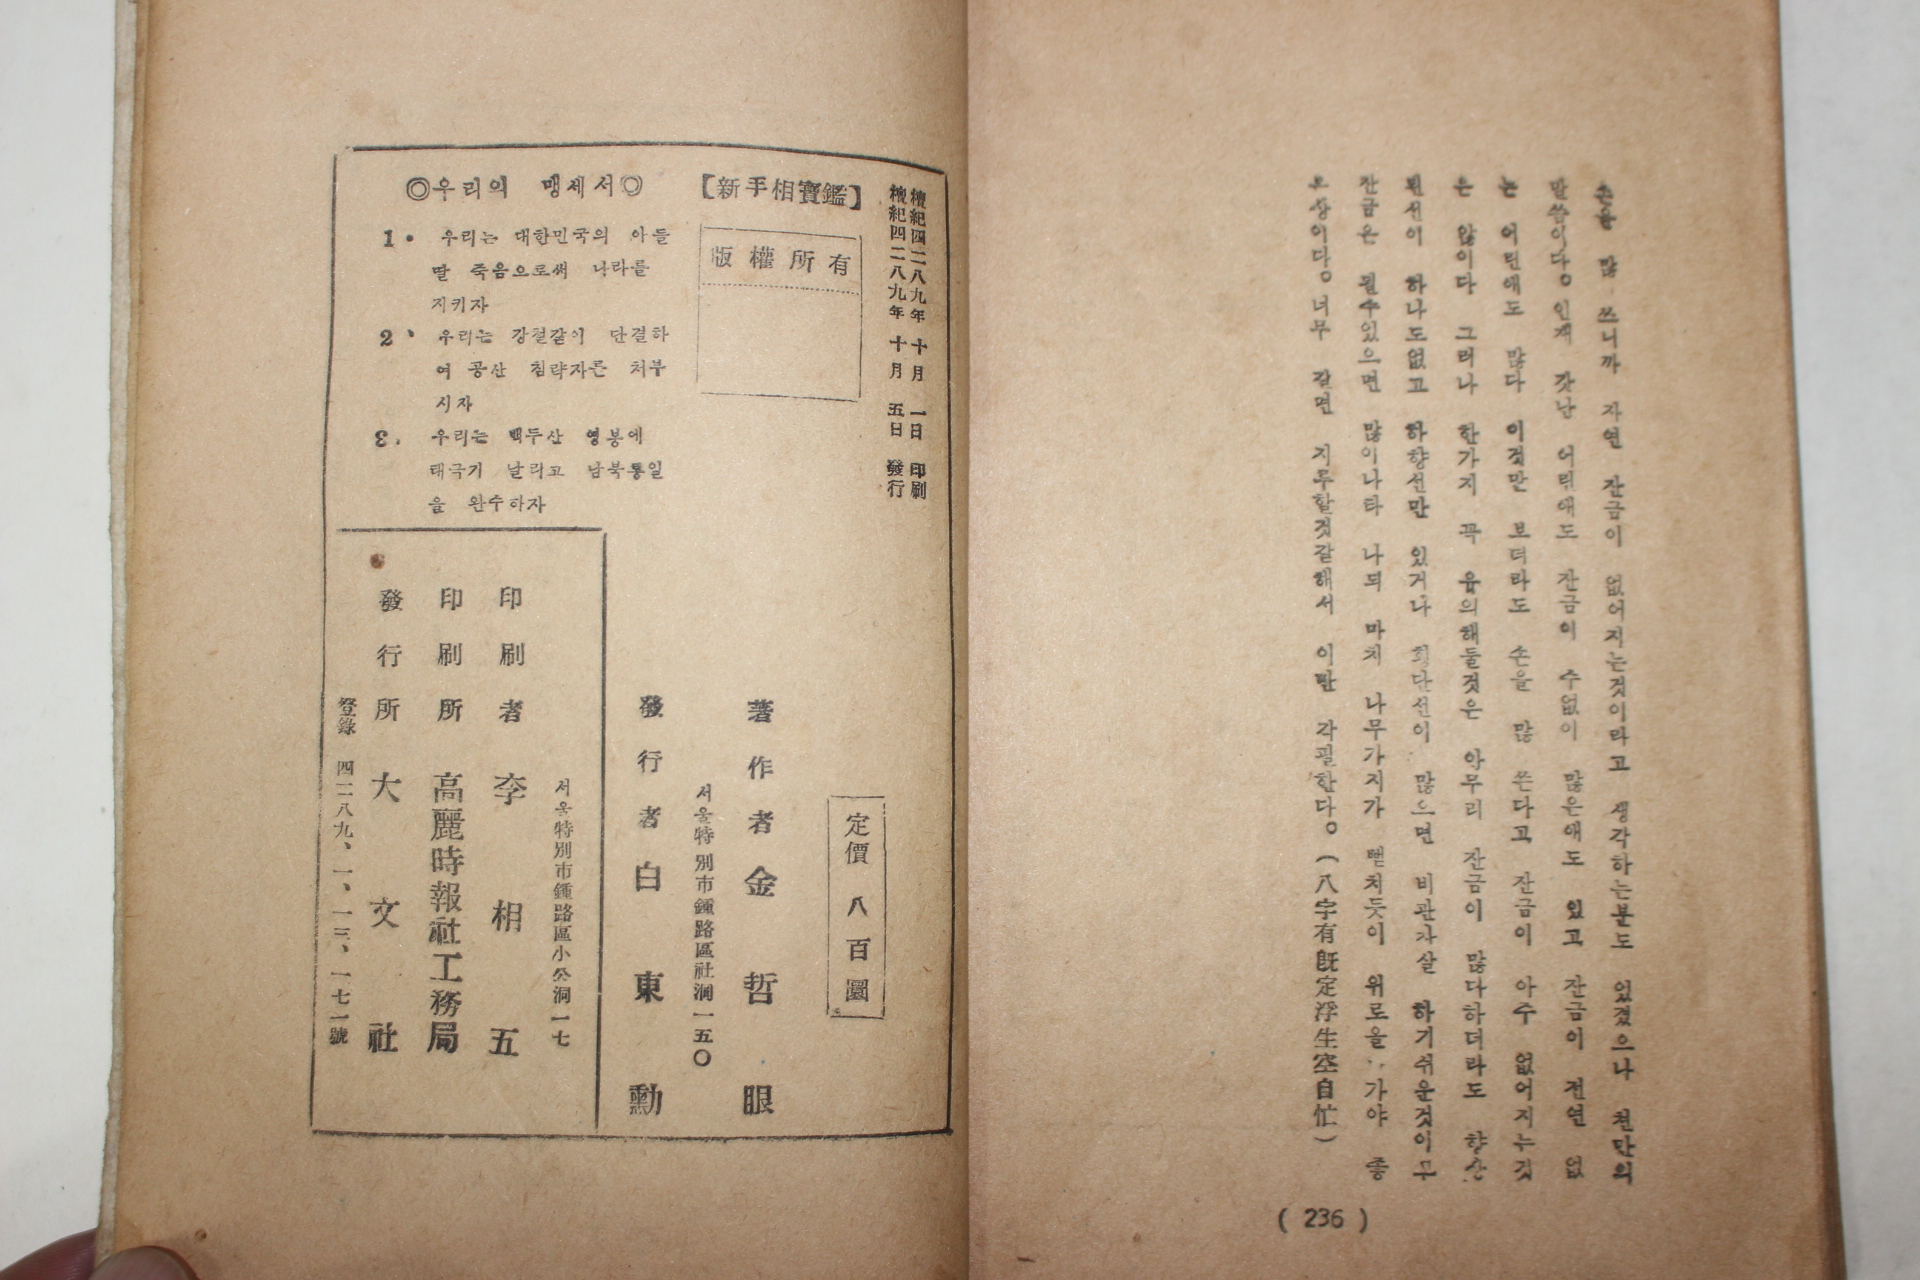 손을 많 쓰니까 자연 잔금이 없어지는것이라고 생각하는분도 있겠으나 천만의
말씀이다。인제 갓난 어린애도 잔금이 수없이 많은애도 있고 잔금이 전연 없
는 어린애도 많다 이것만 보더라도 손을 많 쓴다고 잔금이 아주 없어지는것
은 않이다 그러나 한가지 꼭 유의해둘것은 아무리 잔금이 많다하더라도 향상
된선이 하나도없고 하향선만 있거나 회단선이 많으면 비관자살 하기쉬운것이구
잔금은 될수있으면 많이나타 나되 마치 나무가지가 뻗치듯이 위로올가야 좋
은상이다。너무 길면 지루할것같해서 이만 각필한다。(八字有旣定浮生空自忙)
( 236 )
檀紀四二八九年 十月 一日 印刷
檀紀四二八九年 十月 五日 發行
【新手相寶鑑】
版權所有
◎우리의 맹세서◎
1. 우리는 대한민국의 아들
딸 죽음으로써 나라를
지키자
2、 우리는 강철같이 단결하
여 공산 침략자를 처부
시자
3. 우리는 백두산 영봉에
태극기 날리고 남북통일
을 완수하자
定價 八百圜
著作者 金哲眼
서울特別市鍾路區社洞一五〇
發行者 白東勳
서울特別市鍾路區小公洞一七
印刷者 李相五
印刷所 高麗時報社工務局
發行所 大文社
登錄 四二八九、一、一三、一七一號